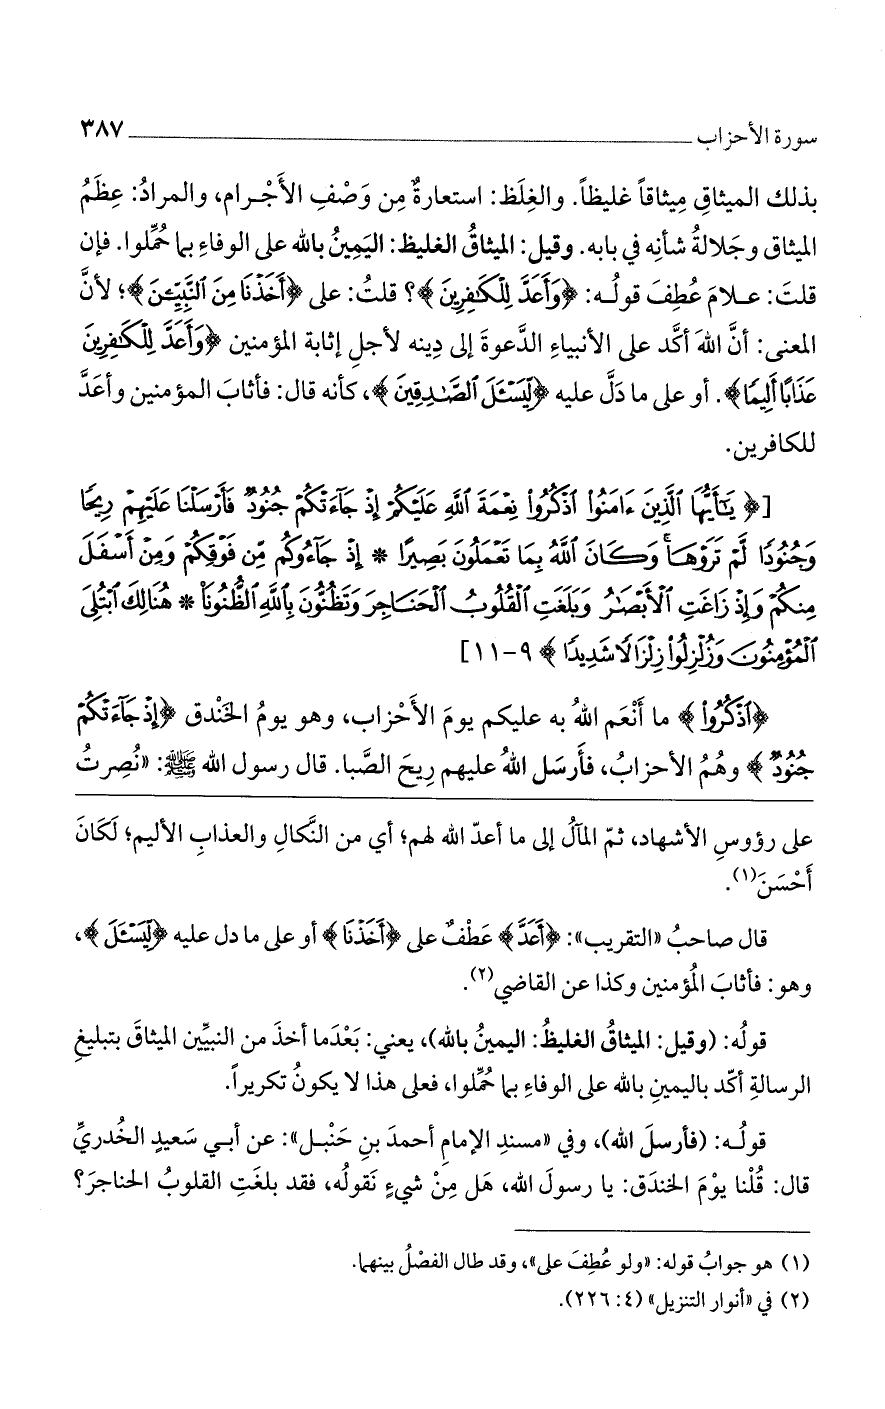 سورة الأحزاب ــــــــــــــــــــــــــــــــــــــــ ٣٨٧
بذلك الميثاقِ مِيثاقاً غليظاً. والغِلَظ: استعارةٌ مِن وَصْفِ الأَجْرام، والمرادُ: عِظَمُ
الميثاق وجَلالةُ شأنِه في بابه. وقيل: الميثاقُ الغليظ: اليَمِينُ بالله على الوفاءِ بما حُمِّلوا. فإن
قلتَ: عـلامَ عُطِفَ قولُـه: ﴿وَأَعَدَّ لِلْكَٰفِرِينَ﴾؟ قلتُ: على ﴿أَخَذْنَا مِنَ ٱلنَّبِيِّـۧنَ﴾؛ لأنَّ
المعنى: أنَّ اللهَ أكَّد على الأنبياءِ الدَّعوةَ إلى دِينه لأجلِ إثابة المؤمنين ﴿وَأَعَدَّ لِلْكَٰفِرِينَ
عَذَابًا أَلِيمًا﴾. أو على ما دَلَّ عليه ﴿لِّيَسْـَٔلَ ٱلصَّٰدِقِينَ﴾، كأنه قال: فأثابَ المؤمنين وأعَدَّ
للكافرين.
[﴿يَـٰٓأَيُّهَا ٱلَّذِينَ ءَامَنُوا۟ ٱذْكُرُوا۟ نِعْمَةَ ٱللَّهِ عَلَيْكُمْ إِذْ جَآءَتْكُمْ جُنُودٌ فَأَرْسَلْنَا عَلَيْهِمْ رِيحًا
وَجُنُودًا لَّمْ تَرَوْهَا ۚ وَكَانَ ٱللَّهُ بِمَا تَعْمَلُونَ بَصِيرًا * إِذْ جَآءُوكُم مِّن فَوْقِكُمْ وَمِنْ أَسْفَلَ
مِنكُمْ وَإِذْ زَاغَتِ ٱلْأَبْصَٰرُ وَبَلَغَتِ ٱلْقُلُوبُ ٱلْحَنَاجِرَ وَتَظُنُّونَ بِٱللَّهِ ٱلظُّنُونَا۠ * هُنَالِكَ ٱبْتُلِىَ
ٱلْمُؤْمِنُونَ وَزُلْزِلُوا۟ زِلْزَالًا شَدِيدًا﴾ ٩-١١]
﴿ٱذْكُرُوا۟﴾ ما أَنْعَم اللهُ به عليكم يومَ الأَحْزاب، وهو يومُ الخَنْدق ﴿إِذْ جَآءَتْكُمْ
جُنُودٌ﴾ وهُمُ الأحزابُ، فأَرسَل اللهُ عليهم رِيحَ الصَّبا. قال رسول الله ﷺ: «نُصِرتُ
على رؤوسِ الأشهاد، ثمّ المآلُ إلى ما أعدّ الله لهم؛ أي من النَّكالِ والعذابِ الأليم؛ لَكَانَ
أَحْسَنَ(١).
قال صاحبُ «التقريب»: ﴿أَعَدَّ﴾ عَطْفٌ على ﴿أَخَذْنَا﴾ أو على ما دل عليه ﴿لِّيَسْـَٔلَ﴾،
وهو: فأثابَ المُؤمنين وكذا عن القاضي(٢).
قولُه: (وقيل: الميثاقُ الغليظُ: اليمينُ بالله)، يعني: بَعْدَما أخذَ من النبيِّين الميثاقَ بتبليغِ
الرسالةِ أكّد باليمينِ بالله على الوفاءِ بما حُمِّلوا، فعلى هذا لا يكونُ تكريراً.
قولُـه: (فأرسلَ الله)، وفي «مسندِ الإمامِ أحمدَ بنِ حَنْبـل»: عن أبـي سَعيدٍ الخُدريِّ
قال: قُلْنا يوْمَ الخندَق: يا رسولَ الله، هَل مِنْ شيءٍ نَقولُه، فقد بلغَتِ القلوبُ الحناجرَ؟
(١) هو جوابُ قوله: «ولو عُطِفَ على»، وقد طال الفصْلُ بينهما.
(٢) في «أنوار التنزيل» (٤: ٢٢٦).